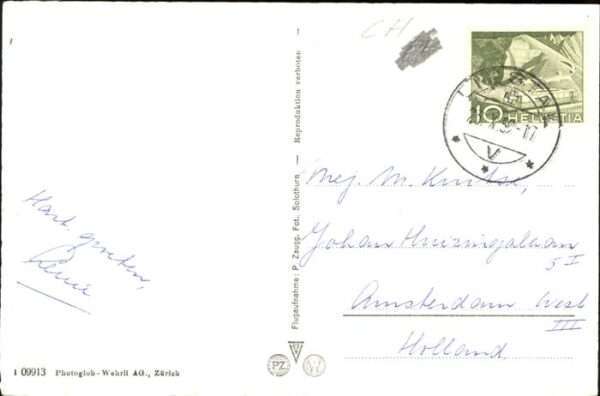 CH
10 HELVETIA
V
Hart. groeten,
Mej. M.
Johan Huizingalaan
5 I
Amsterdam West
III
Holland
Flugaufnahme: P. Zaugg, Fot., Solothurn — Reproduktion verboten —
PZ
1 09913 Photoglob-Wehrli AG., Zürich